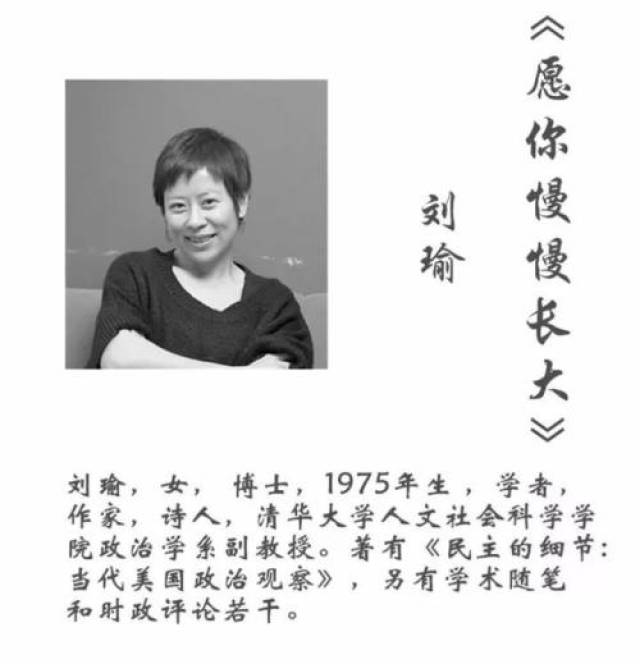 《愿你慢慢长大》
刘瑜
刘瑜，女， 博士，1975年生 ，学者，
作家，诗人，清华大学人文社会科学学
院政治学系副教授。著有《民主的细节：
当代美国政治观察》，另有学术随笔
和时政评论若干。